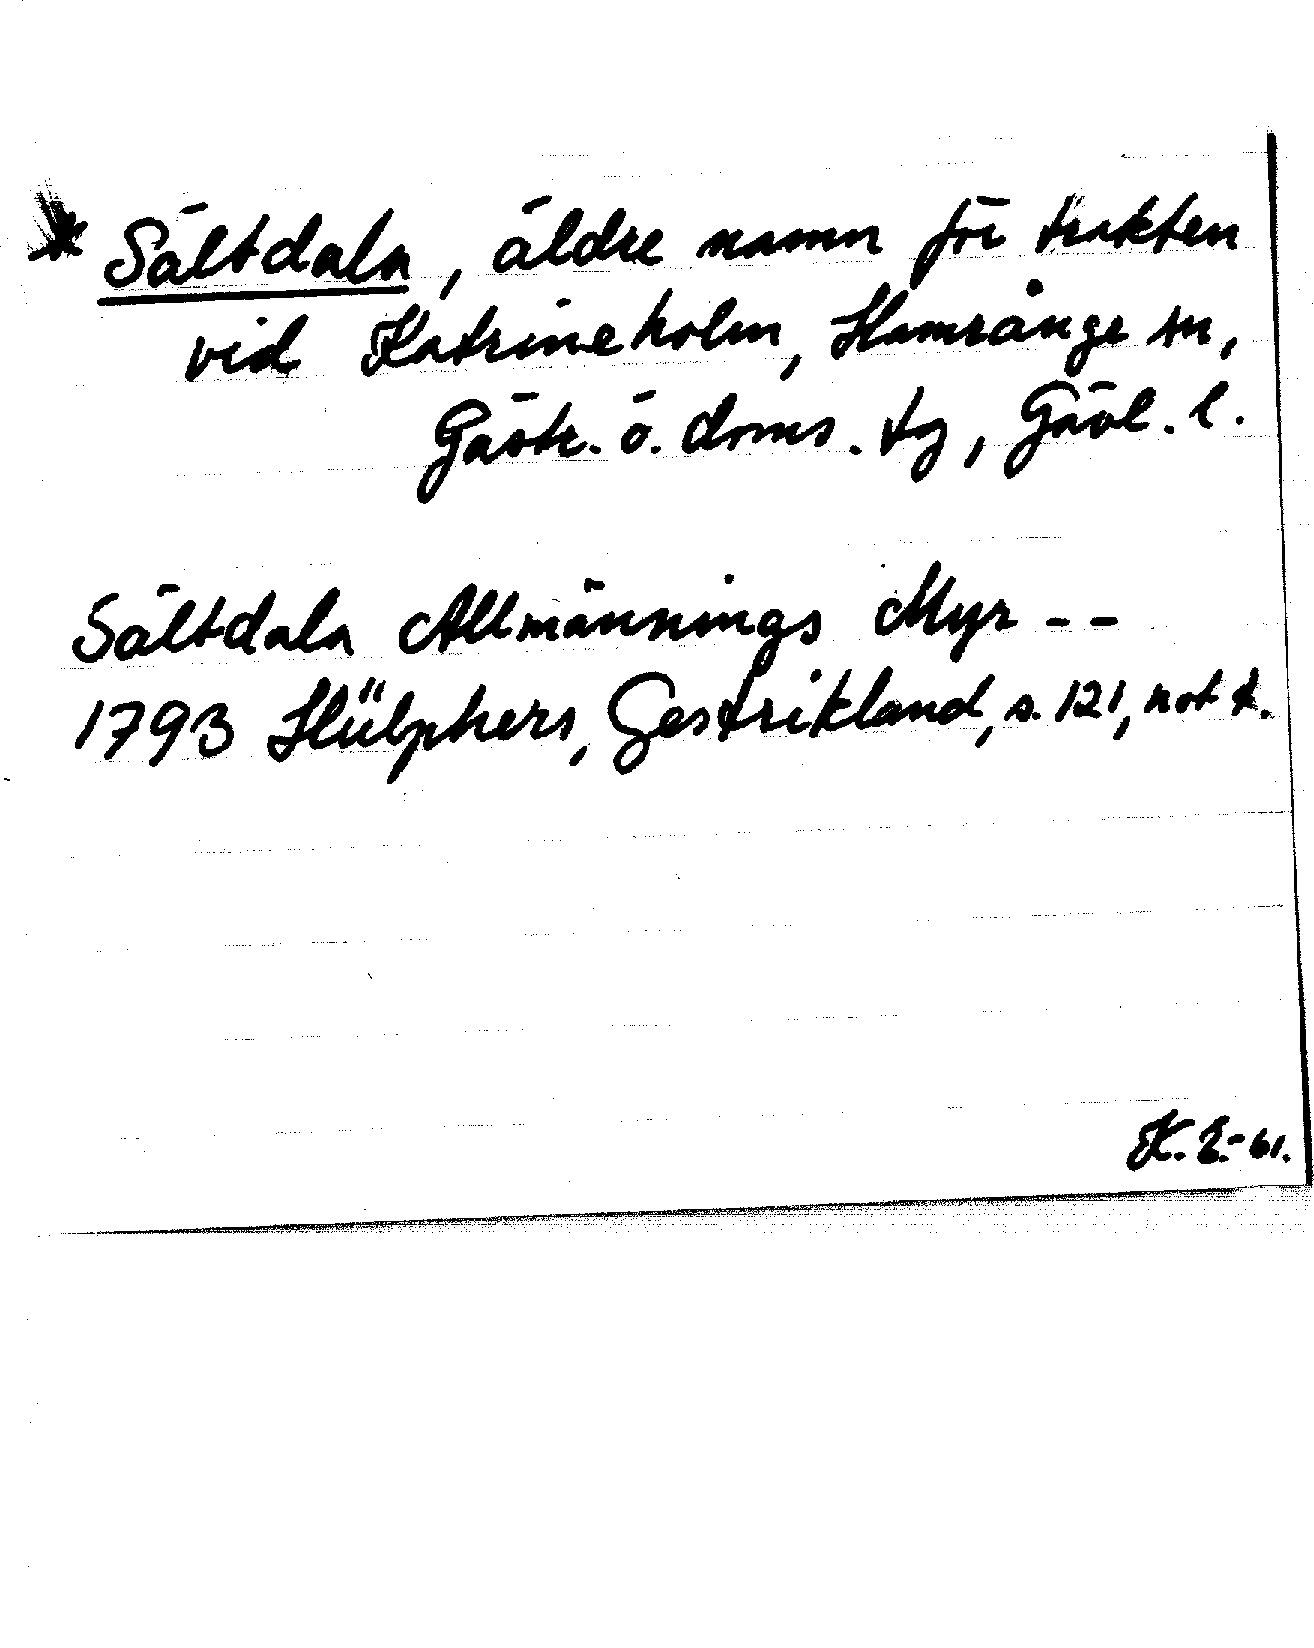 * Sältdala, äldre namn för trakten
vid Katrineholm, Hamrånge sn,
Gästr. ö. doms. tg, Gävl. l.
Sältdala Allmännings Myr --
1793 Hülphers, Gestrikland, s. 121, not t.
K. E.-61.